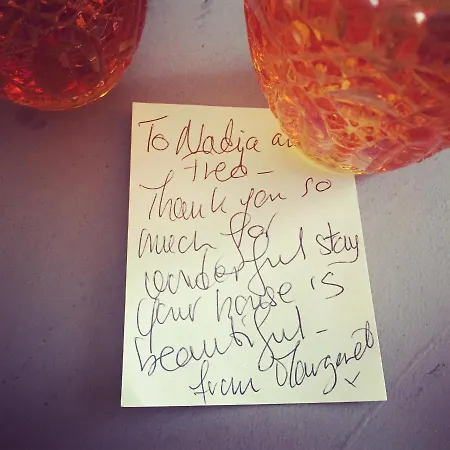 To Nadja a
Fred -
Thank you so
much for
wonderful stay
your house is
beautiful -
from Margaret